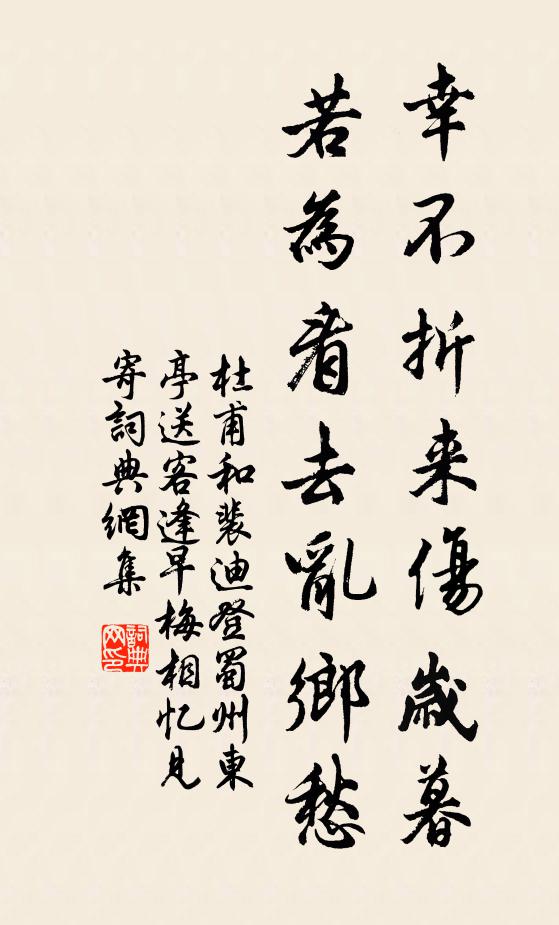 幸不折来傷歲暮
若為看去亂鄉愁
杜甫和裴迪登蜀州東
亭送客逢早梅相忆見
寄詞典網集
詞典网印